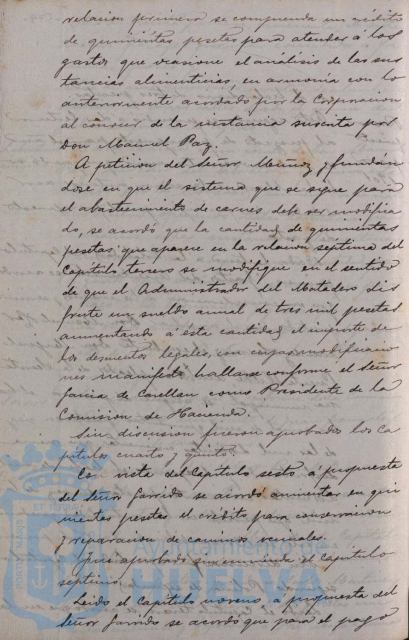 relacion primera se comprenda un crédito
de quinientas pesetas para atender á los
gastos que ocasione el análisis de las sus
tancias alimenticias, en armonia con lo
anteriormente acordado por la Corporacion
al conocer de la instancia suscrita por
Don Manuel Paz.
A peticion del Señor Muñoz y fundán
dose en que el sistema que se sigue para
el abastecimiento de carnes debe ser modifica
do, se acordó que la cantidad de quinientas
pesetas que aparece en la relacion séptima del
Capítulo tercero se modifique en el sentido
de que el Administrador del Matadero dis
frute un sueldo anual de tres mil pesetas
aumentando á ésta cantidad el importe de
los descuentos legales, con cuyas modificacio
nes manifestó hallarse conforme el Señor
Garcia de Castellan como Presidente de la
Comision de Hacienda.
Sin discusion fueron aprobados los Ca
pítulos cuarto y quinto.
Con vista del Capítulo sesto á propuesta
del Señor Garrido se acordó aumentar en qui
nientas pesetas el crédito para conservacion
y reparacion de caminos vecinales.
Fué aprobado sin enmienda el capítulo
septimo.
Leido el Capítulo noveno á propuesta del
Señor Garrido se acordó que para el pago
Ayuntamiento de
HUELVA